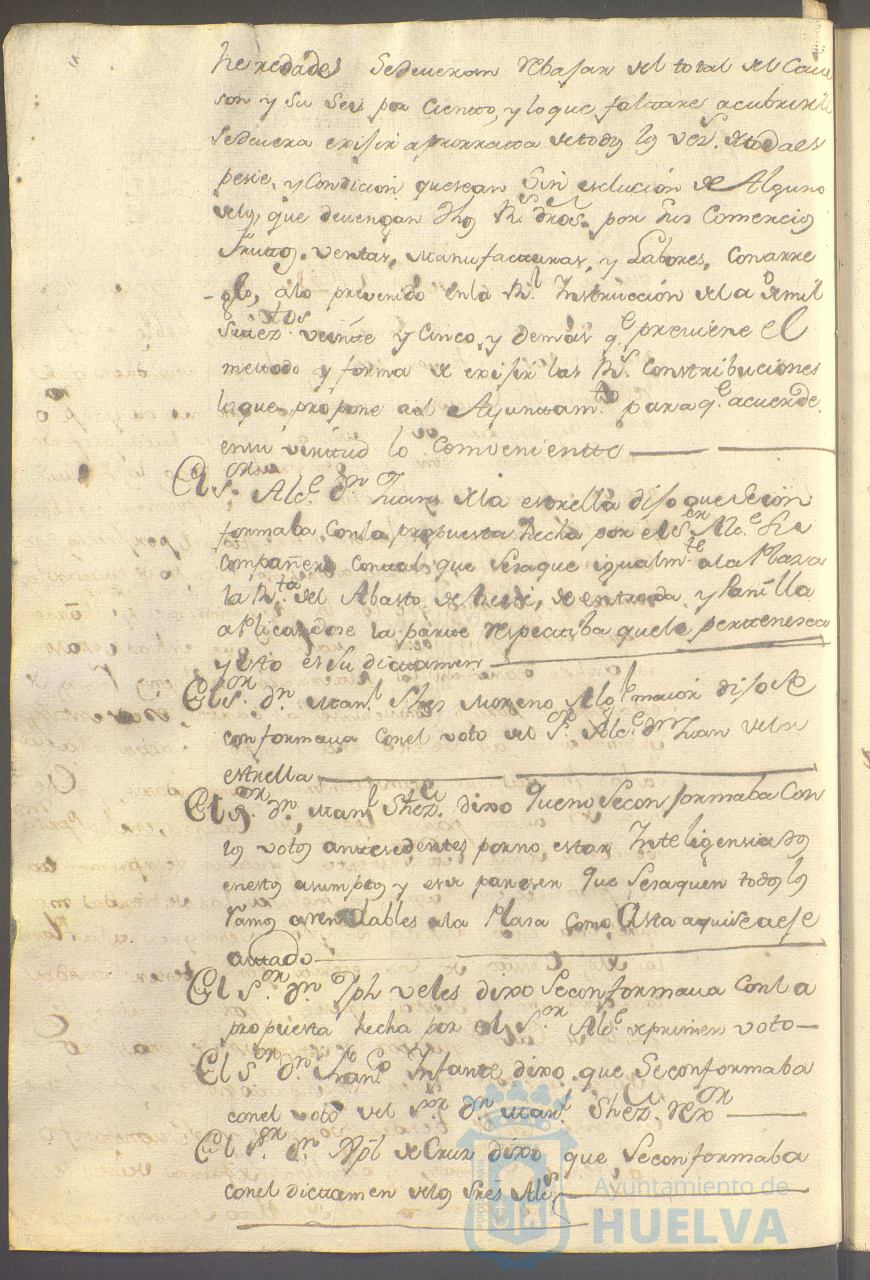 heredades sedeveran rebajar del total del Cave
son y su seis por ciento, y lo que faltare acubrirle
sedevera exijir aprorrata detodos los vez.s detoda es
pesie, y Condicion quesean Sin esclución de Alguno
delos, que devengan dhos R.s dros. por sus Comercios
frutos. ventas, Manufacturas, y Labores, Conarre
glo, alo prevenido enla R.l Instrucción dela de mil
setez.tos veinte y Cinco, y demas q.e previene el
metodo y forma de exijir las R.s Constribuciones
loque propone ael Ayuntam.to para q.e acuerde
ensu virttud lo Combenientte
El s.or Alc.e d.n Juan dela estrella dijo que secon
formaba Conla propuesta hecha por el S.or Alc.e su
Compañero Contal que sesaque igualm.te ala Plaza
la R.ta del Abasto de Aceite, de entrada y Panilla
aplicandose la parte respectiba quele perttenesca
y esto es su dictamen
El s.or d.n Man.l Shez Moreno Alg.l maior dijo se
conformava Conel voto del S.or Alc.e d.n Juan dela
estrella
El s.or d.n Man.l Shez. dixo Queno seconformaba Con
los votos antesedentes porno estar Inteligensiados
enestos asumptos y es de pareser Que sesaquen todos los
Ramos arendables ala Plasa Como Asta aquise a ese
cutado
El S.or d.n Jph veles dixo seconformava Conla
propuesta hecha por el S.or Alc.e deprimer voto
El s.or d.n Fran.co Infante dixo que Seconformaba
conel voto del S.or d.n Man.l Shez. Rex.or
El s.or d.n Xpl de Cruz dixo que Seconformaba
conel dictamen delos sres Alc.s
Ayuntamiento de
HUELVA